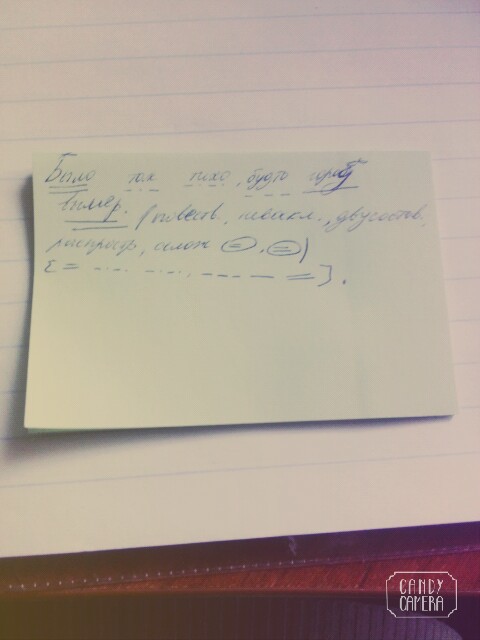 Было так тихо, будто город
вымер. (повеств., невоскл., двусостав.,
распростр, слож
CANDY
CAMERA